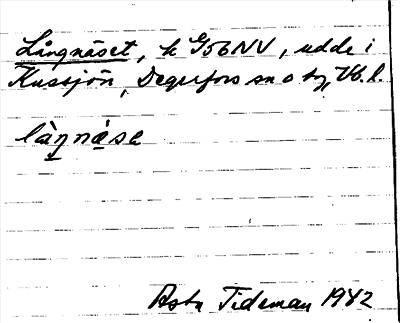 Långnäset, k G56NV, udde i
Kussjön, Degerfors sn o tg, Vb. l.
låŋnäse
Asta Tideman 1942